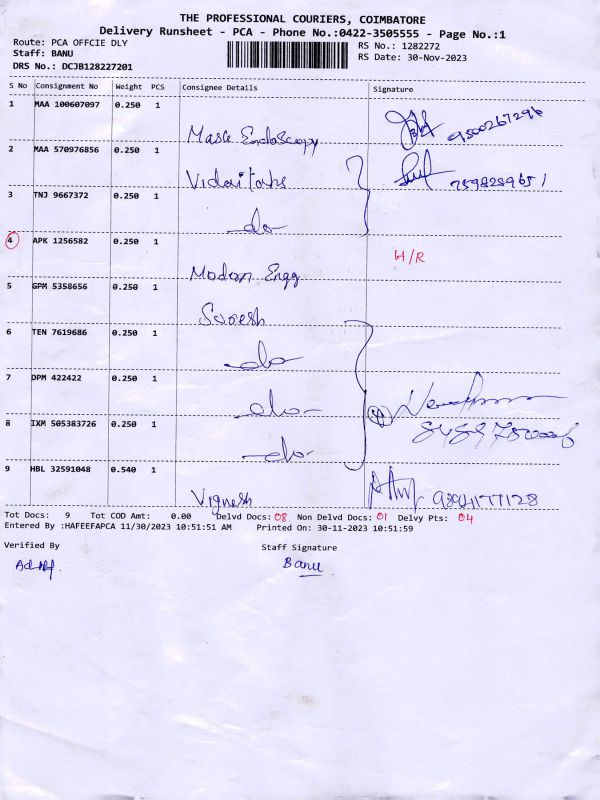 THE PROFESSIONAL COURIERS, COIMBATORE
Delivery Runsheet - PCA - Phone No.:0422-3505555 - Page No.:1
Route: PCA OFFCIE DLY
RS No.: 1282272
Staff: BANU
RS Date: 30-Nov-2023
DRS No.: DCJB128227201
S No Consignment No Weight PCS Consignee Details Signature
1 MAA 100607097 0.250 1
9500267296
Mask Endoscopy
2 MAA 570976856 0.250 1
7598259651
3 TNJ 9667372 0.250 1
do
4 APK 1256582 0.250 1
H/R
Modern Engg
5 GPM 5358656 0.250 1
Suresh
6 TEN 7619686 0.250 1
do
7 DPM 422422 0.250 1
do
8 IXM 505383726 0.250 1
do
9 HBL 32591048 0.540 1
Vignesh
Tot Docs: 9 Tot COD Amt: 0.00 Delvd Docs: 08 Non Delvd Docs: 01 Delvy Pts: 04
Entered By :HAFEEFAPCA 11/30/2023 10:51:51 AM Printed On: 30-11-2023 10:51:59
Verified By Staff Signature
Banu